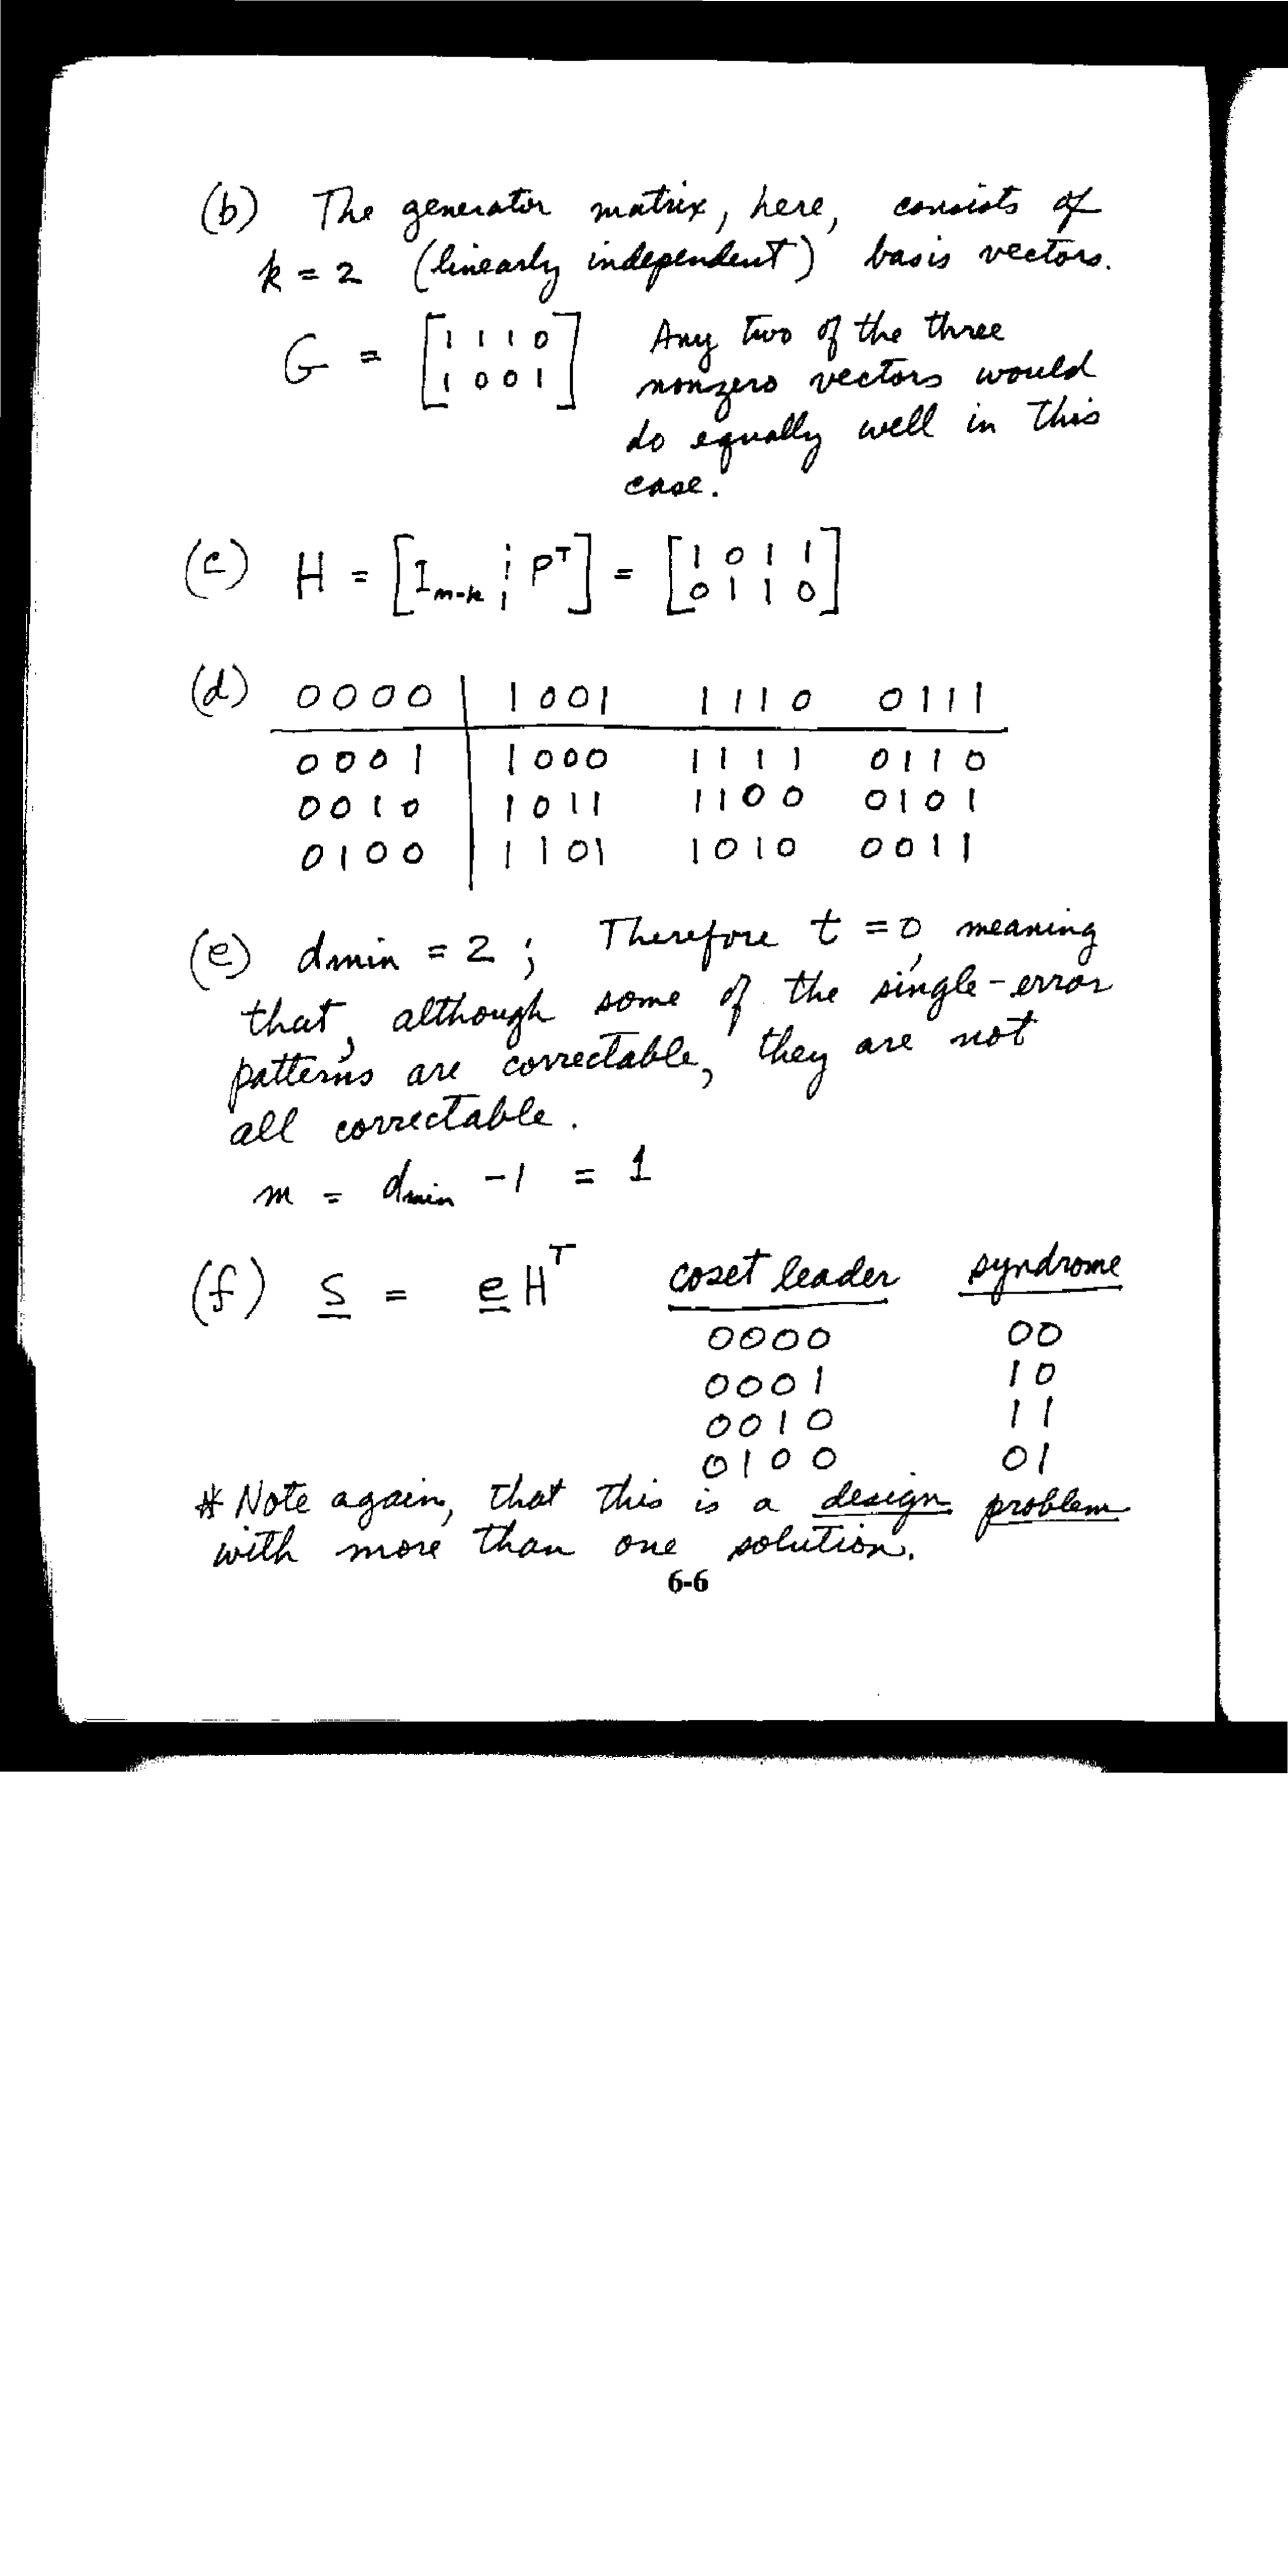 (b) The generator matrix, here, consists of
k = 2 (linearly independent) basis vectors.
G = [1 1 1 0
1 0 0 1] Any two of the three
nonzero vectors would
do equally well in this
case.
(c) H = [I n-k ¦ P^T] = [1 0 1 1
0 1 1 0]
(d) 0000 | 1001 1110 0111
0001 | 1000 1111 0110
0010 | 1011 1100 0101
0100 | 1101 1010 0011
(e) dmin = 2 ; Therefore t = 0, meaning
that, although some of the single-error
patterns are correctable, they are not
all correctable.
m = dmin - 1 = 1
(f) S = e H^T coset leader syndrome
0000 00
0001 10
0010 11
0100 01
* Note again, that this is a design problem
with more than one solution.
6-6